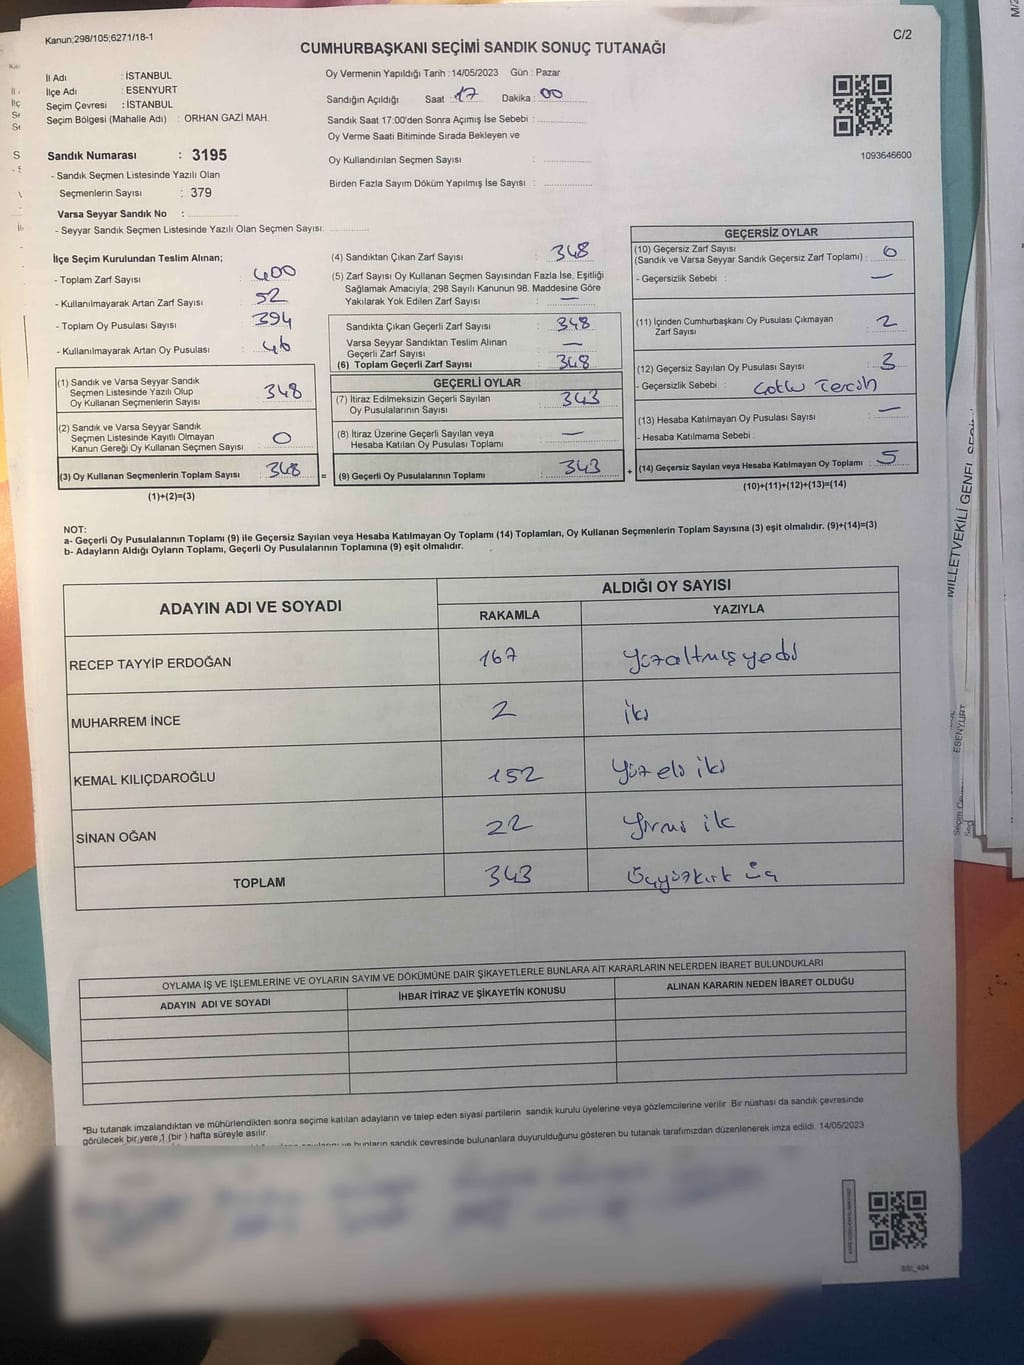 Kanun;298/105;6271/18-1
C/2
CUMHURBAŞKANI SEÇİMİ SANDIK SONUÇ TUTANAĞI
İl Adı : İSTANBUL
İlçe Adı : ESENYURT
Seçim Çevresi : İSTANBUL
Seçim Bölgesi (Mahalle Adı) : ORHAN GAZİ MAH.
Sandık Numarası : 3195
- Sandık Seçmen Listesinde Yazılı Olan
Seçmenlerin Sayısı : 379
Varsa Seyyar Sandık No :
- Seyyar Sandık Seçmen Listesinde Yazılı Olan Seçmen Sayısı:
Oy Vermenin Yapıldığı Tarih : 14/05/2023 Gün : Pazar
Sandığın Açıldığı Saat : 17 Dakika : 00
Sandık Saat 17:00'den Sonra Açılmış İse Sebebi :
Oy Verme Saati Bitiminde Sırada Bekleyen ve
Oy Kullandırılan Seçmen Sayısı :
Birden Fazla Sayım Döküm Yapılmış İse Sayısı :
1093646600
İlçe Seçim Kurulundan Teslim Alınan;
- Toplam Zarf Sayısı : 400
- Kullanılmayarak Artan Zarf Sayısı : 52
- Toplam Oy Pusulası Sayısı : 394
- Kullanılmayarak Artan Oy Pusulası : 46
(1) Sandık ve Varsa Seyyar Sandık
Seçmen Listesinde Yazılı Olup
Oy Kullanan Seçmenlerin Sayısı : 348
(2) Sandık ve Varsa Seyyar Sandık
Seçmen Listesinde Kayıtlı Olmayan
Kanun Gereği Oy Kullanan Seçmen Sayısı : 0
(3) Oy Kullanan Seçmenlerin Toplam Sayısı : 348
(1)+(2)=(3)
(4) Sandıktan Çıkan Zarf Sayısı : 348
(5) Zarf Sayısı Oy Kullanan Seçmen Sayısından Fazla İse, Eşitliği
Sağlamak Amacıyla; 298 Sayılı Kanunun 98. Maddesine Göre
Yakılarak Yok Edilen Zarf Sayısı : —
Sandıkta Çıkan Geçerli Zarf Sayısı : 348
Varsa Seyyar Sandıktan Teslim Alınan
Geçerli Zarf Sayısı : —
(6) Toplam Geçerli Zarf Sayısı : 348
=
GEÇERLİ OYLAR
(7) İtiraz Edilmeksizin Geçerli Sayılan
Oy Pusulalarının Sayısı : 343
(8) İtiraz Üzerine Geçerli Sayılan veya
Hesaba Katılan Oy Pusulası Toplamı : —
(9) Geçerli Oy Pusulalarının Toplamı : 343
+
GEÇERSİZ OYLAR
(10) Geçersiz Zarf Sayısı
(Sandık ve Varsa Seyyar Sandık Geçersiz Zarf Toplamı) : 0
- Geçersizlik Sebebi : —
(11) İçinden Cumhurbaşkanı Oy Pusulası Çıkmayan
Zarf Sayısı : 2
(12) Geçersiz Sayılan Oy Pusulası Sayısı : 3
- Geçersizlik Sebebi : Çoklu Tercih
(13) Hesaba Katılmayan Oy Pusulası Sayısı : —
- Hesaba Katılmama Sebebi :
(14) Geçersiz Sayılan veya Hesaba Katılmayan Oy Toplamı : 5
(10)+(11)+(12)+(13)=(14)
NOT:
a- Geçerli Oy Pusulalarının Toplamı (9) ile Geçersiz Sayılan veya Hesaba Katılmayan Oy Toplamı (14) Toplamları, Oy Kullanan Seçmenlerin Toplam Sayısına (3) eşit olmalıdır. (9)+(14)=(3)
b- Adayların Aldığı Oyların Toplamı, Geçerli Oy Pusulalarının Toplamına (9) eşit olmalıdır.
ADAYIN ADI VE SOYADI
ALDIĞI OY SAYISI
RAKAMLA YAZIYLA
RECEP TAYYİP ERDOĞAN 167 yüzaltmışyedi
MUHARREM İNCE 2 iki
KEMAL KILIÇDAROĞLU 152 yüz elli iki
SİNAN OĞAN 22 yirmi iki
TOPLAM 343 üçyüzkırk üç
OYLAMA İŞ VE İŞLEMLERİNE VE OYLARIN SAYIM VE DÖKÜMÜNE DAİR ŞİKAYETLERLE BUNLARA AİT KARARLARIN NELERDEN İBARET BULUNDUKLARI
ADAYIN ADI VE SOYADI İHBAR İTİRAZ VE ŞİKAYETİN KONUSU ALINAN KARARIN NEDEN İBARET OLDUĞU
*Bu tutanak imzalandıktan ve mühürlendikten sonra seçime katılan adayların ve talep eden siyasi partilerin sandık kurulu üyelerine veya gözlemcilerine verilir .Bir nüshası da sandık çevresinde
görülecek bir yere 1 (bir ) hafta süreyle asılır.
ve bunların sandık çevresinde bulunanlara duyurulduğunu gösteren bu tutanak tarafımızdan düzenlenerek imza edildi. 14/05/2023
SSI_404
MİLLETVEKİLİ GENEL
ESENYURT